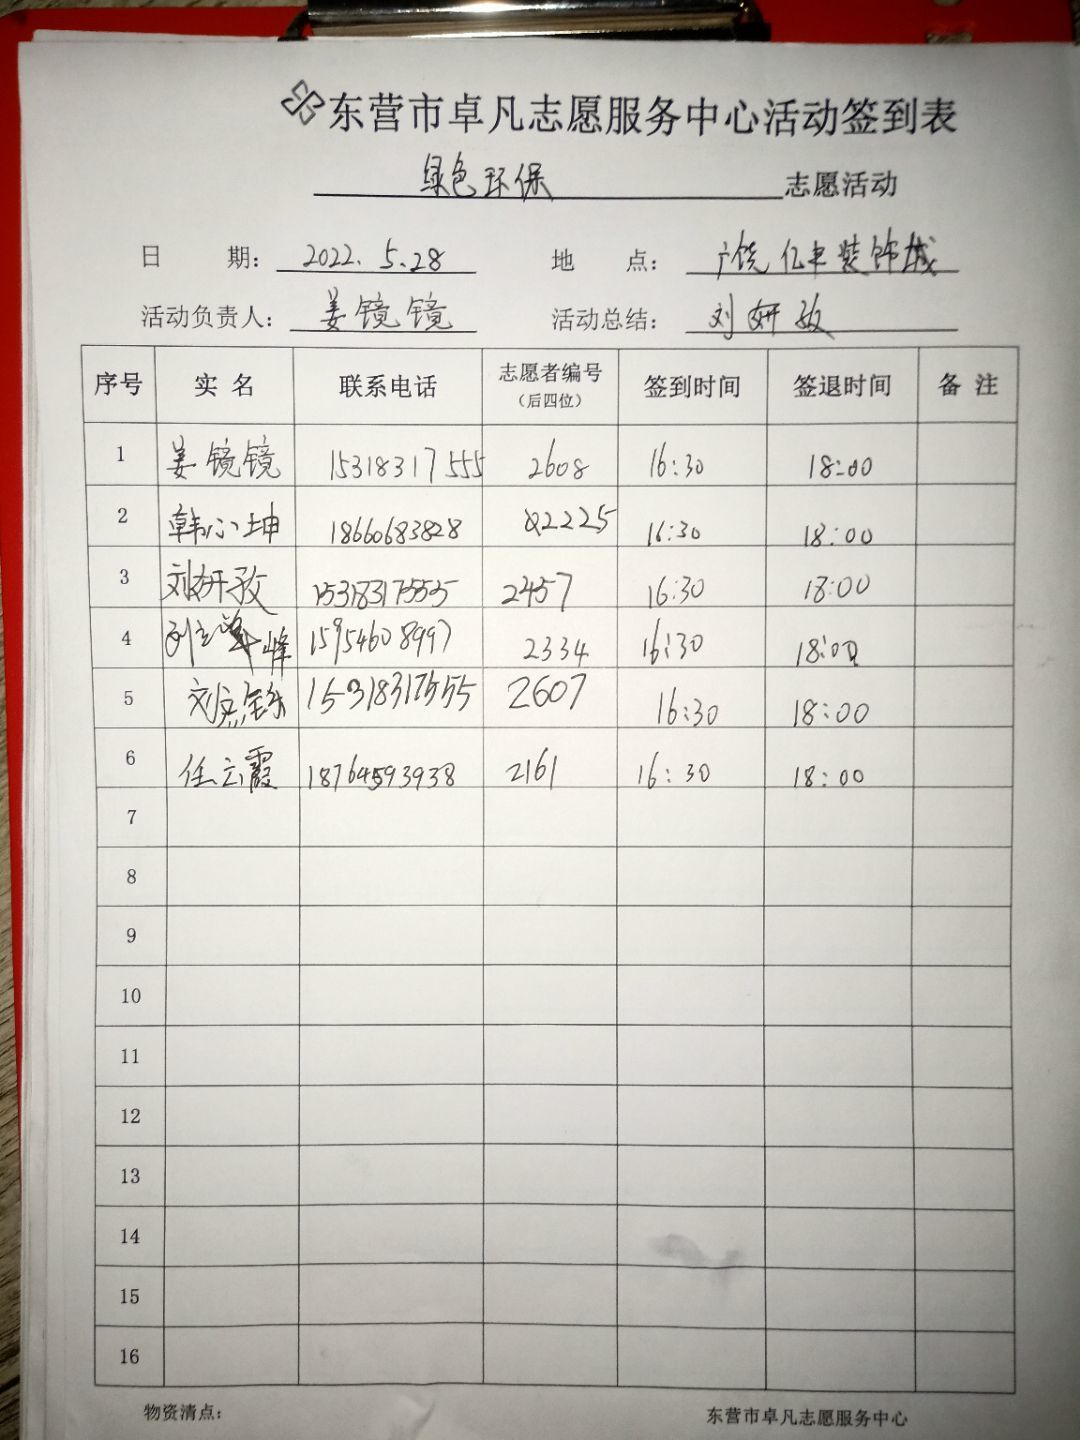 东营市卓凡志愿服务中心活动签到表
绿色环保 志愿活动
日 期: 2022.5.28 地 点: 广饶亿丰装饰城
活动负责人: 姜镜镜 活动总结: 刘妍孜
序号 实名 联系电话 志愿者编号（后四位） 签到时间 签退时间 备注
1 姜镜镜 15318317555 2608 16:30 18:00
2 韩小坤 18660683828 2225 16:30 18:00
3 刘妍孜 15318317555 2457 16:30 18:00
4 峰 15954608997 2334 16:30 18:00
5 刘 15318317555 2607 16:30 18:00
6 任云霞 18764593938 2161 16:30 18:00
7
8
9
10
11
12
13
14
15
16
物资清点: 东营市卓凡志愿服务中心